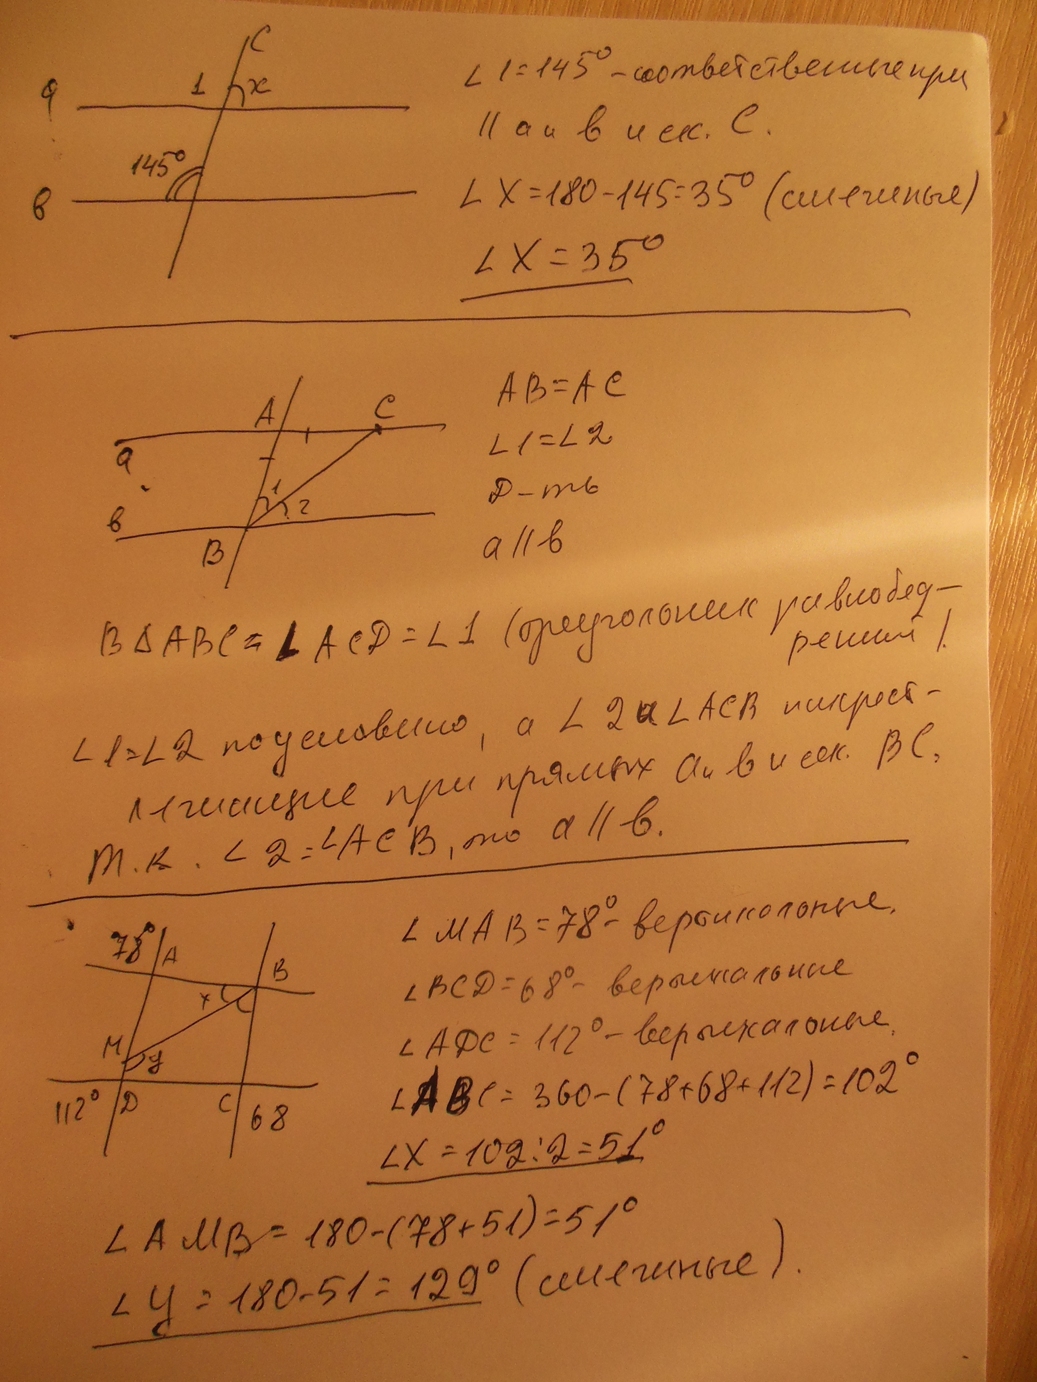 C
a
1
x
∠1=145° - соответственные при
|| a и в и ск. C.
145°
в
∠X=180-145=35° (смежные)
∠X=35°
A
C
a
1
2
в
B
AB=AC
∠1=∠2
Д-ть
a||в
В ΔABC = ∠ACD=∠1 (треугольник равнобед-
ренный).
∠1=∠2 по условию, а ∠2 и ∠ACB накрест-
лежащие при прямых a и в и сек. BC.
Т.к. ∠2=∠ACB, то a||в.
78°
A
B
x
M
y
112°
D
C
68
∠MAB=78° - вертикальные.
∠BCD=68° - вертикальные
∠ADC=112° - вертикальные.
∠ABC=360-(78+68+112)=102°
∠X=102:2=51°
∠AMB=180-(78+51)=51°
∠y=180-51=129° (смежные).